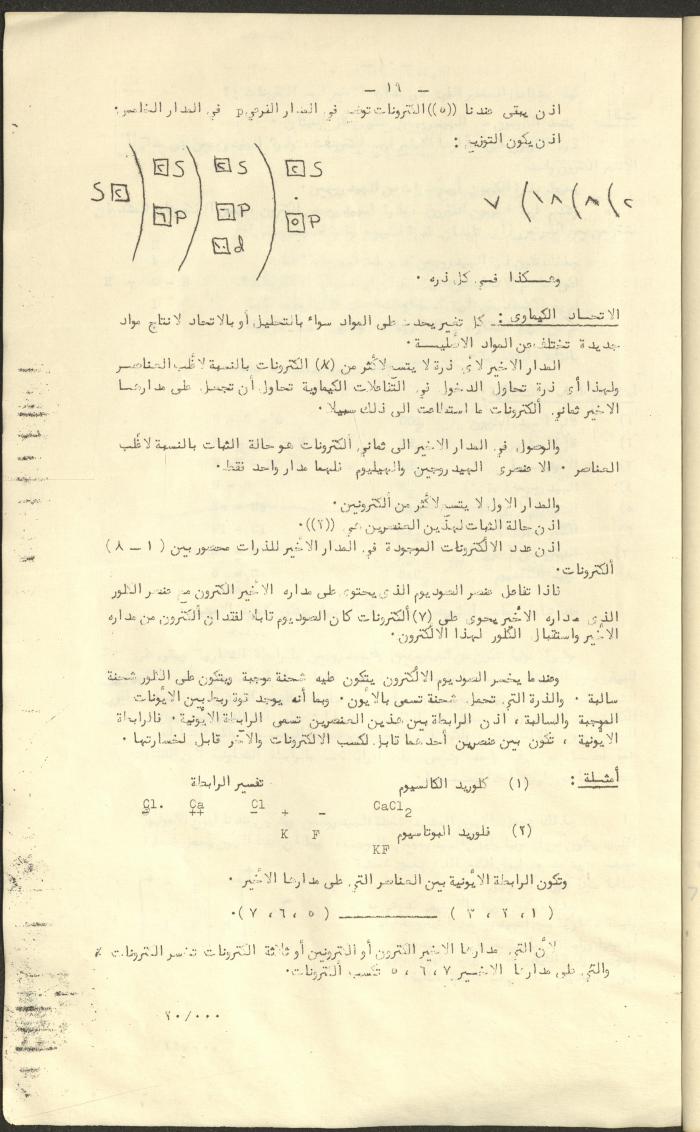 — ١٩ —
اذن يبقى عندنا ((٥)) الكترونات توضع في المدار الفرعي p في المدار الخامس.
اذن يكون التوزيع :
S ٢ ) ٢ S ) ٢ S ) ٢ S
٦ P ) ٦ P ) ٥ P
١٠ d
٢ ) ٨ ) ١٨ ) ٧
وهــكذا فسي كل ذره .
الاتحـاد الكيماوى : كل تغيير يحدث على المواد سواء بالتحليل أو بالاتحاد لانتاج مواد
جديدة تختلف عن المواد الأصليـة .
المدار الاخير لاى ذرة لا يتسع لاكثر من (٨) الكترونات بالنسبة لاغلب العناصر
ولهذا أى ذرة تحاول الدخول في التفاعلات الكيماوية تحاول أن تجعل على مدارهـا
الاخير ثماني ألكترونات ما استطاعت الى ذلك سبيلا .
والوصول في المدار الاخير الى ثماني ألكترونات هو حالة الثبات بالنسبة لاغلب
العناصر . الا عنصرى الهيدروجين والهيليوم فلهما مدار واحد فقط .
والمدار الاول لا يتسع لاكثر من ألكترونين .
اذن حالة الثبات لهذين العنصرين هي ((٢)) .
اذن عدد الالكترونات الموجودة في المدار الاخير للذرات محصور بين ( ١ — ٨ )
ألكترونات .
فاذا تفاعل عنصر الصوديوم الذى يحتوى على مداره الأخير الكترون مع عنصر الكلور
الذى مداره الأخير يحوى على (٧) ألكترونات كان الصوديوم قابلا لفقدان ألكترون من مداره
الأخير واستقبال الكلور لهذا الالكترون .
وعندما يخسر الصوديوم الالكترون يتكون عليه شحنة موجبة ويتكون على الكلور شحنة
سالبة . والذرة التي تحمل شحنة تسمى بالأيون . وبما أنه يوجد قوة ربط بين الأيونات
الموجبة والسالبة ، اذن الرابطة بين هذين العنصرين تسمى الرابطة الأيونية . فالرابطة
الأيونية ، تكون بين عنصرين أحدهما قابل لكسب الالكترونات والآخر قابل لخسارتها .
أمثـلة : (١) كلوريد الكالسيوم تفسير الرابطة
CaCl2 Cl. Ca Cl
− ++ − + −
(٢) فلوريد البوتاسيوم K F
KF
وتكون الرابطة الأيونية بين العناصر التي على مدارها الأخير .
( ١ ، ٢ ، ٣ ) ———— ( ٥ ، ٦ ، ٧ ) .
لأن التي مدارها الاخير الكترون أو الكترونين أو ثلاثة الكترونات تخسر الكترونات
والتي على مدارها الاخـير ٧ ، ٦ ، ٥ تكسب ألكترونات .
٢٠/٠٠٠